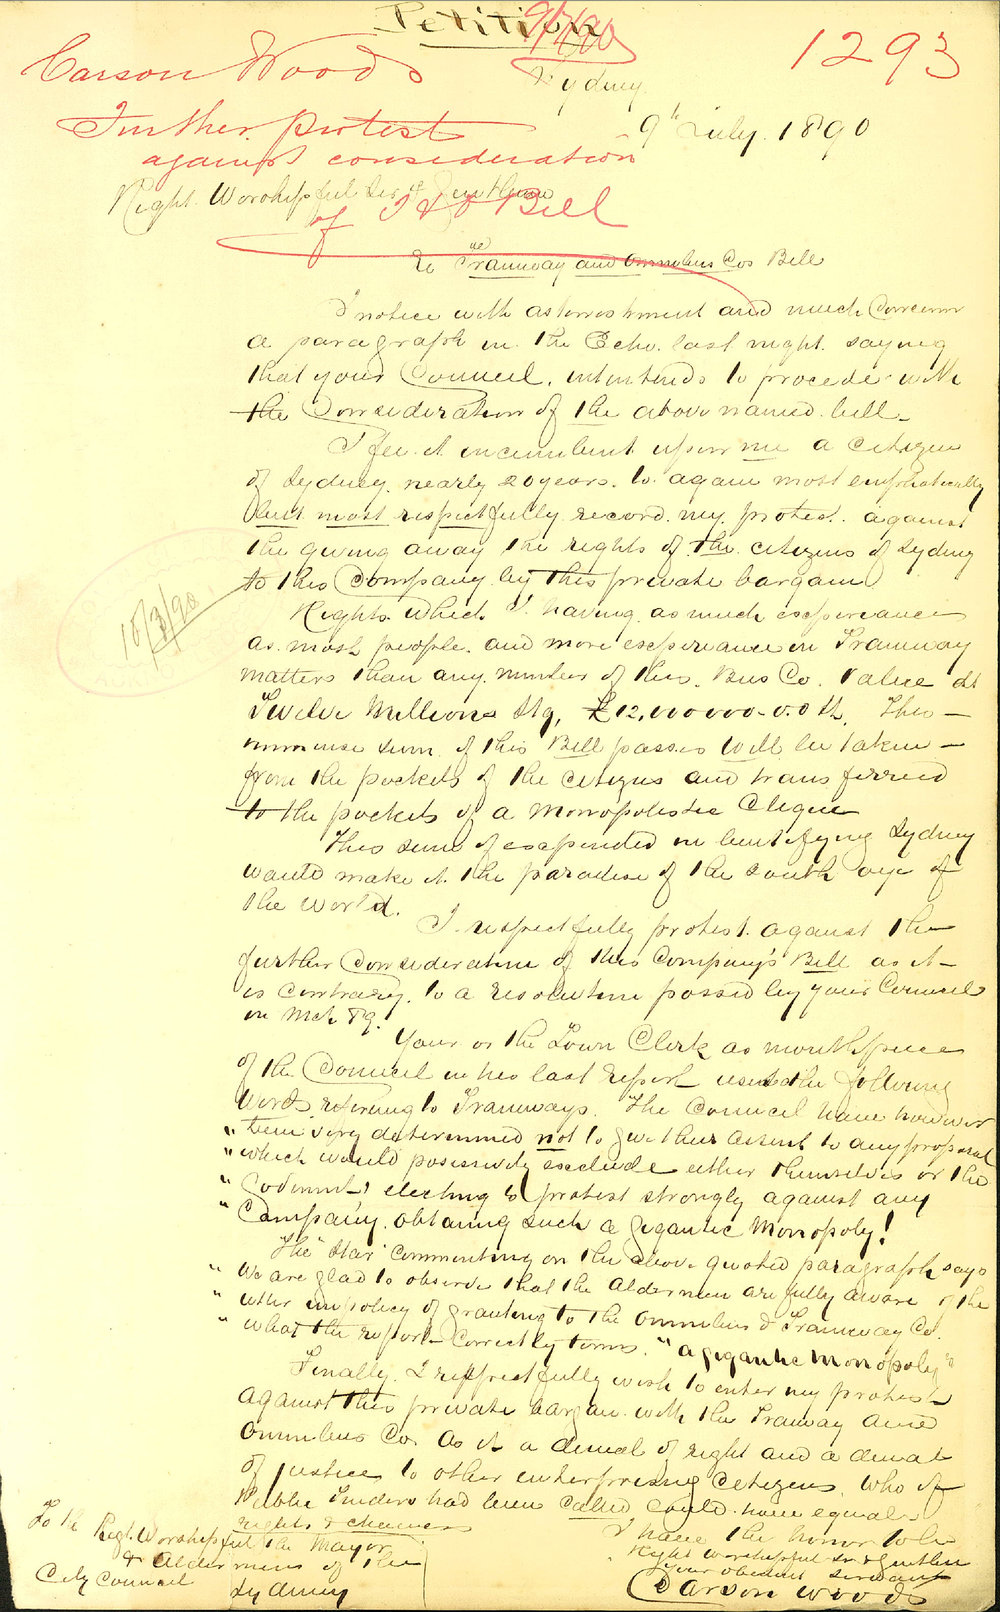 Petition
9/7/90
Carson Woods
1293
Sydney
9th July. 1890
Further protest
against consideration
of T & O Bill
Right Worshipful Sir & Gentlemen
Re the Tramway and Omnibus Cos Bill
I notice with astonishment and much concern
a paragraph in the Echo last night saying
that your Council, intends to procede with
the Consideration of the above named bill.
I feel it incumbent upon me a citizen
of Sydney nearly 20 years. to again most emphatically
but most respectfully record my protest against
the giving away the rights of the citizens of Sydney
to this Company by this private bargain
10/3/90
Rights which I having as much experience
as most people. and more experience in Tramway
matters than any members of this Bus Co. Value at
Twelve Millions Stg, £12,000000-0.0 Stg. This
immense sum if this Bill passes will be taken
from the pockets of the citizens and transferred
to the pockets of a Monopolistic Clique
This sum if expended in beutifying Sydney
would make it the paradise of the south
the world.
I respectfully protest against the
further Consideration of this Company's Bill as it
is contrary to a resolution passed by your Council
in Mch 89.
Your or the Town Clerk as mouthpiece
of the Council in his last report used the following
words referring to Tramways. The Council have however
" been very determined not to give their assent to any proposal
" which would possessively exclude either themselves or the
" electing to protest strongly against any
" Company obtaining such a gigantic Monopoly!
The "Star" commenting on the above quoted paragraph says
" We are glad to observe that the Aldermen are fully aware of the
" utter impolicy of granting to the Omnibus & Tramway Co.
" what the report correctly terms. "a gigantic monopoly"
Finally I respectfully wish to enter my protest
against this private bargain with the Tramway and
Omnibus Co. As it a denial of right and a denial
of justice to other enterprising Citizens who if
Public Tenders had been called could have equal
rights & chances
I have the honor to be
Right Worshipful Sir & Gentlemen
Your obedient servant
Carson Woods
To the Right Worshipful the Mayor
& Aldermens of the
City Council
Sydney